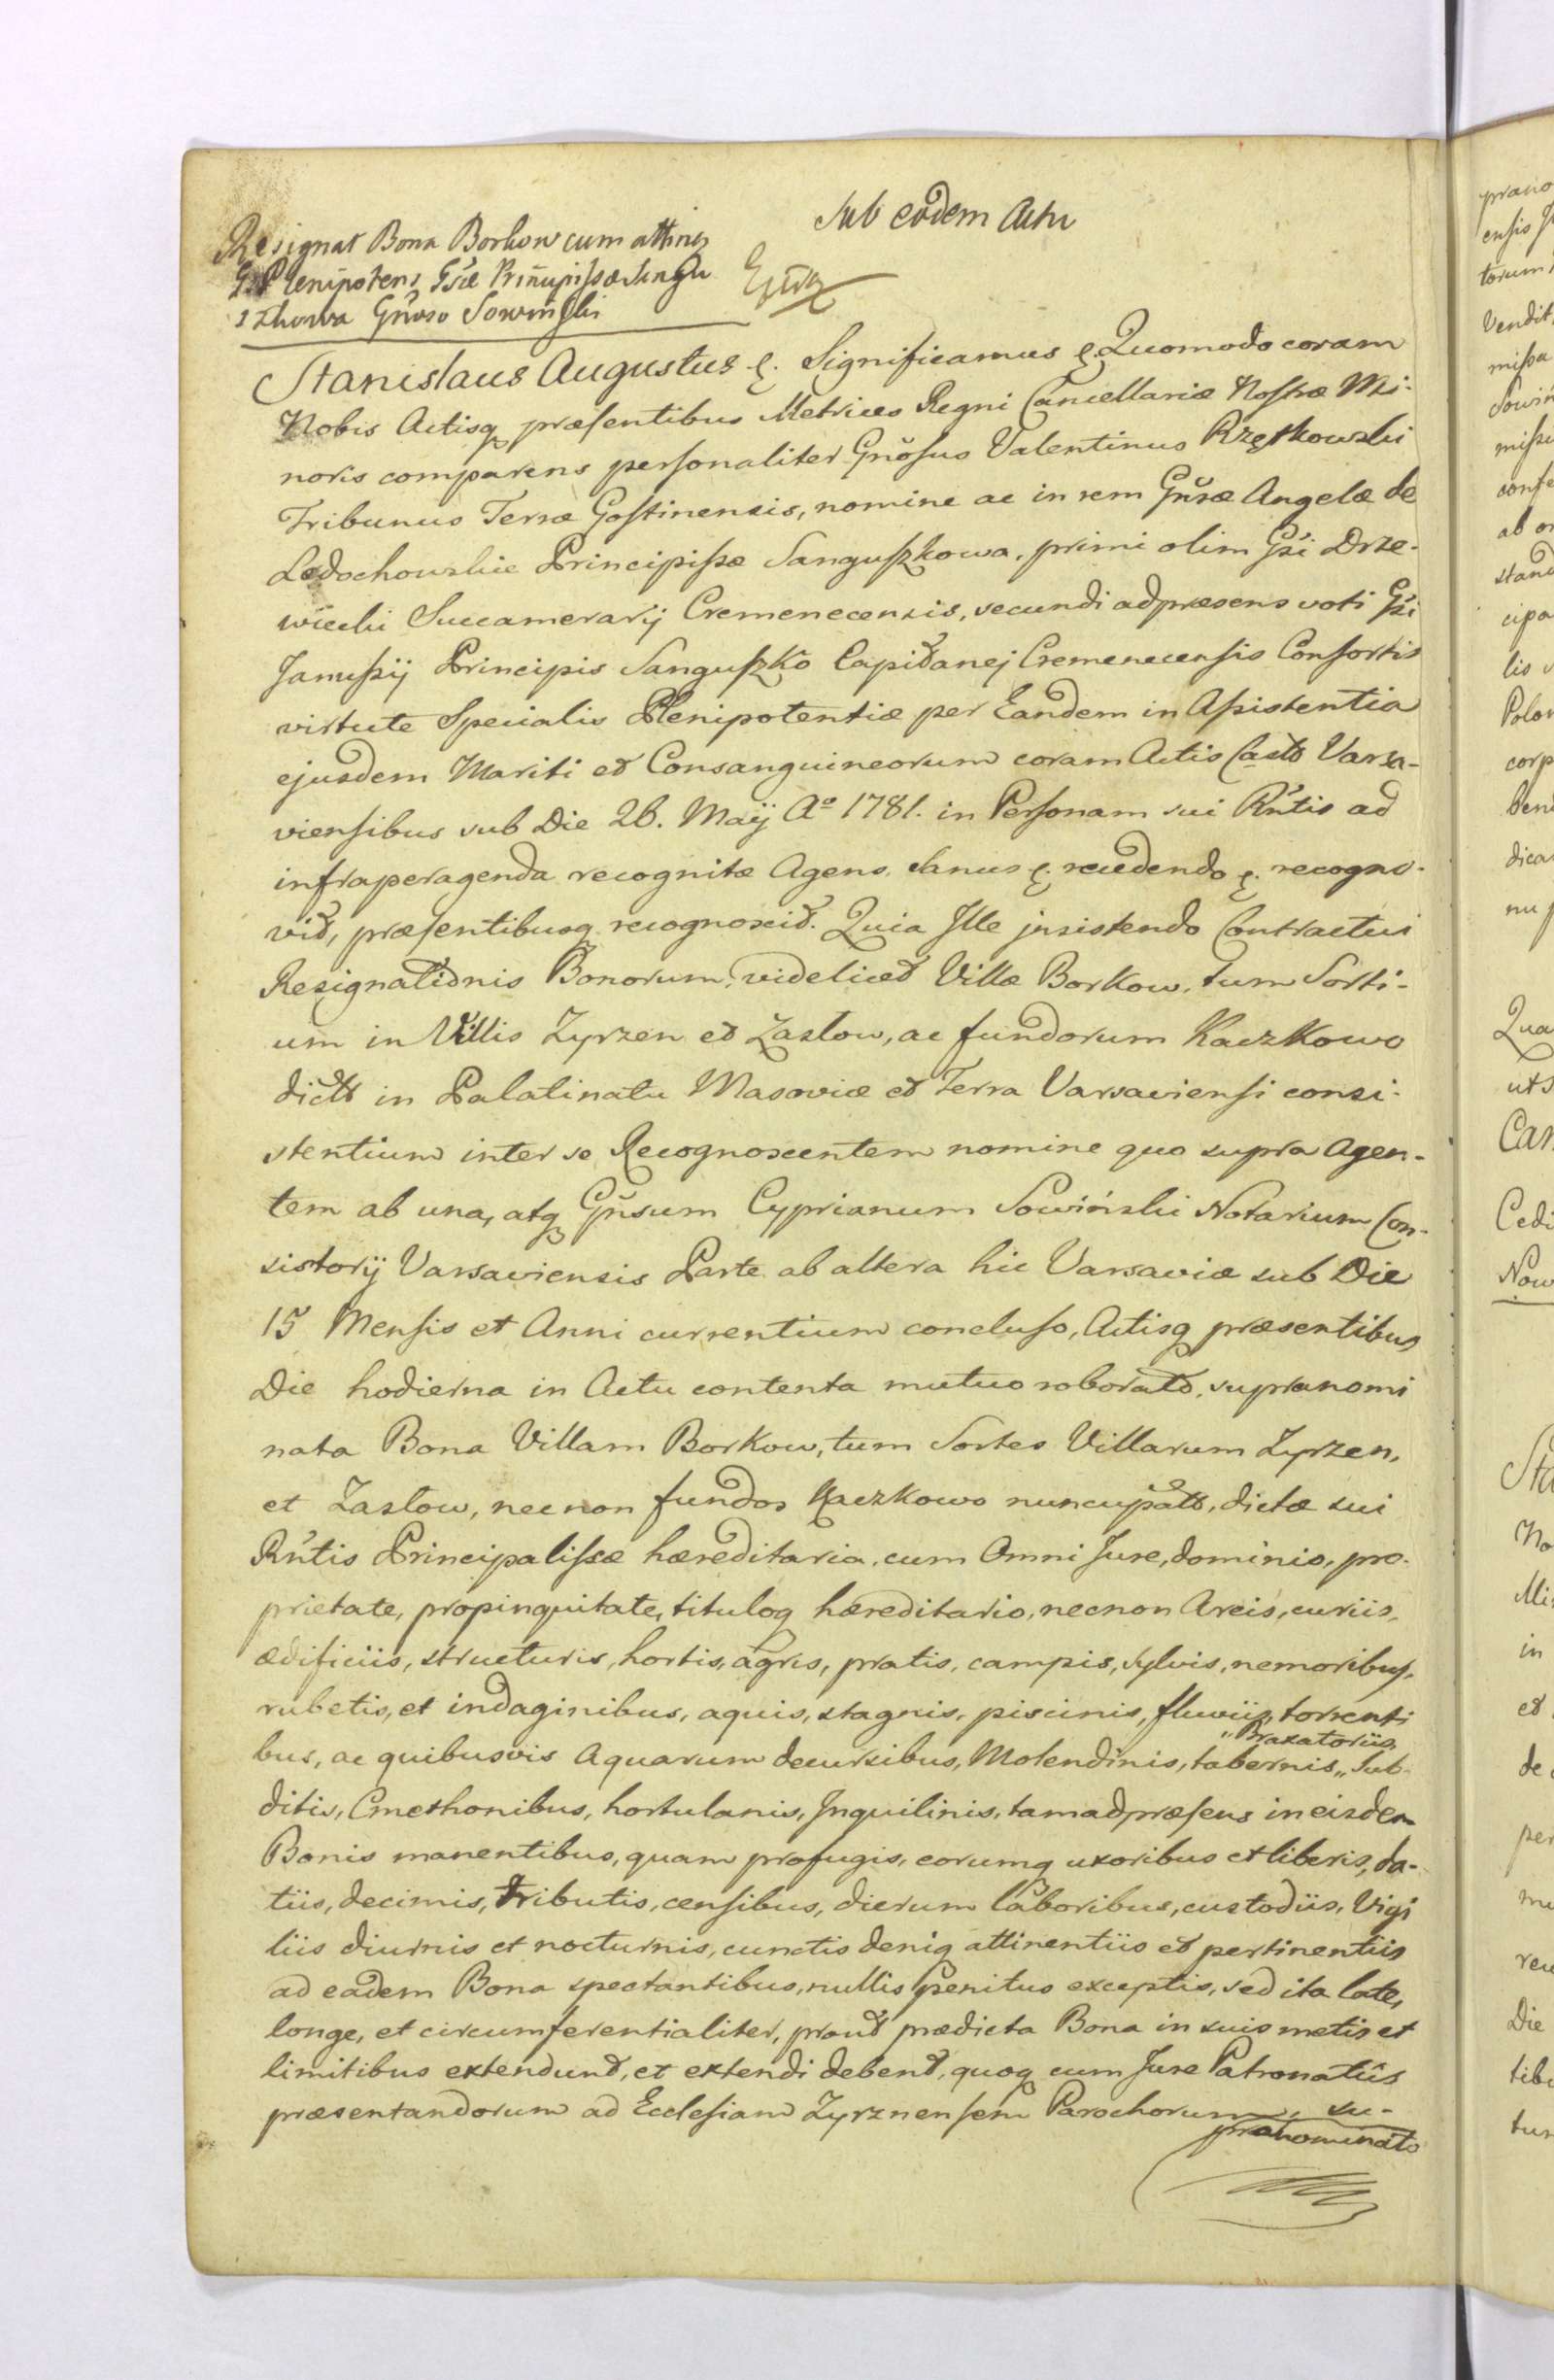 Sub eodem Actu
Resignat Bona Borkow cum attinen
Gsi Plenipotens Gsæ Principissæ Sangu
szkowa Gnoso Sowinski
Stanislaus Augustus ę. Significamus ę. Quomodo coram
Nobis Actisq præsentibus Metrices Regni Cancellariæ Nostræ Mi-
noris comparens personaliter Gnosus Valentinus Rzętkowski
Tribunus Terræ Gostinensis, nomine ac in rem Gnsæ Angelæ de
Ledochowskie Principissæ Sanguszkowa, primi olim Gsi Drze-
wiecki Succamerarij Cremenecensis, secundi adpræsens voti Gsi
Janussij Principis Sanguszko Capitanej Cremenecensis Consortis
virtute Specialis Plenipotentiæ per Eandem in Assistentia
ejusdem Mariti et Consanguineorum coram Actis Castr Varsa-
viensibus sub Die 26. Maij Aº 1781. in Personam sui Rntis ad
infraperagenda recognitæ Agens. Sanus ę. recedendo ę. recogno-
vit, præsentibusq recognoscit. Quia Ille insistendo Contractui
Resignationis Bonorum, videlicet Villæ Borkow, tum Sorti-
um in Villis Zyrzen et Zastow, ac fundorum Kaczkowo
dict in Palatinatu Masoviæ et Terra Varsaviensi consi-
stentium inter se Recognoscentem nomine quo supra Agen-
tem ab una, atq Gnsum Cyprianum Sowiński Notarium Con-
sistorij Varsaviensis Parte ab altera hic Varsaviæ sub Die
15 Mensis et Anni currentium concluso, Actisq præsentibus
Die hodierna in Actu contenta mutuo roborato, supranomi
nata Bona Villam Borkow, tum Sortes Villarum Zyrzen,
et Zastow, necnon fundos Kaczkowo nuncupat, dictæ sui
Rntis Principalissæ hæreditaria, cum Omni Jure, dominio, pro-
prietate, propinquitate, tituloq hæreditario, necnon Areis, curiis,
ædificiis, structuris, hortis, agris, pratis, campis, sylvis, nemoribus,
rubetis, et indaginibus, aquis, stagnis, piscinis, fluviis, torrenti
"Braxatoriis,
bus, ac quibusvis Aquarum decursibus, Molendinis, tabernis," Sub-
ditis, Cmethonibus, hortulanis, Inquilinis, tam adpræsens in eisdem
Bonis manentibus, quam profugis, eorumq uxoribus et liberis, da-
tiis, decimis, tributis, censibus, dierum laboribus, custodiis, Vigi
liis diurnis et nocturnis, cunctis deniq attinentiis et pertinentiis
ad eadem Bona spectantibus, nullis penitus exceptis, sed ita late,
longe, et circumferentialiter, prout prædicta Bona in suis metis et
limitibus extendunt, et extendi debent, quoq cum Jure Patronatûs
præsentandorum ad Ecclesiam Zyrznensem Parochorum, su-
pranominato